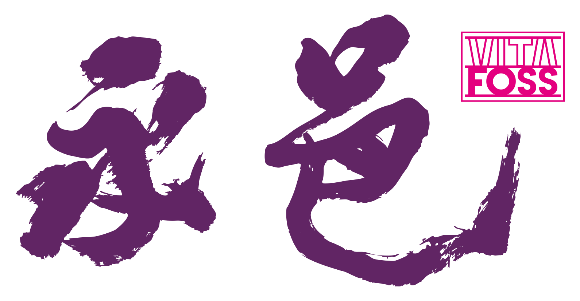 永邑
VITA
FOSS